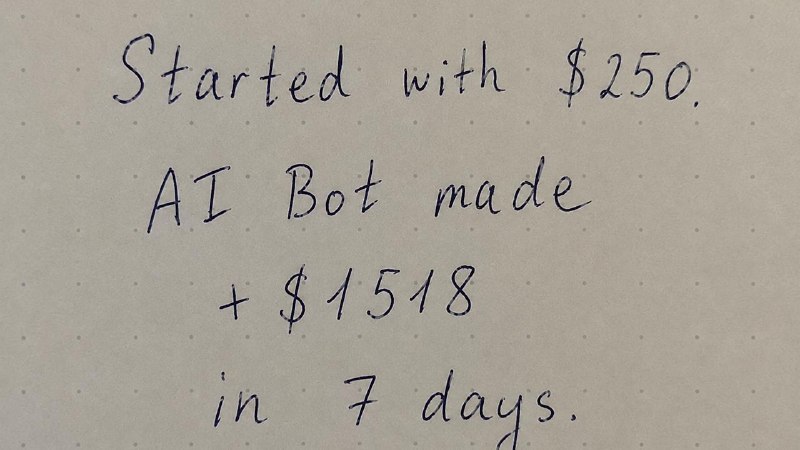 Started with $250.
AI Bot made
+ $1518
in 7 days.